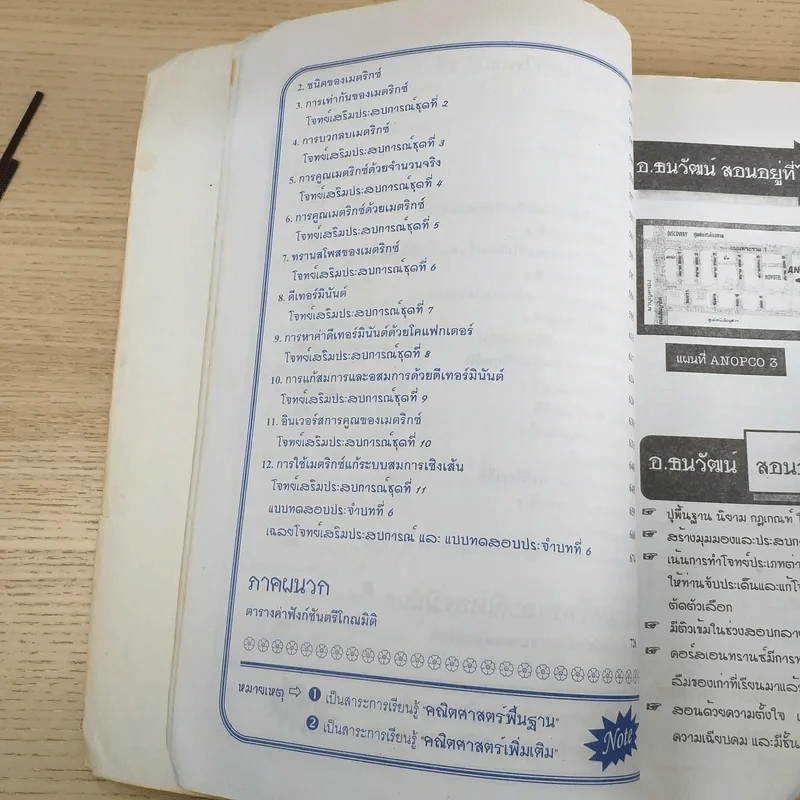 2. ชนิดของเมตริกซ์
3. การเท่ากันของเมตริกซ์
โจทย์เสริมประสบการณ์ชุดที่ 2
4. การบวกลบเมตริกซ์
โจทย์เสริมประสบการณ์ชุดที่ 3
5. การคูณเมตริกซ์ด้วยจำนวนจริง
โจทย์เสริมประสบการณ์ชุดที่ 4
6. การคูณเมตริกซ์ด้วยเมตริกซ์
โจทย์เสริมประสบการณ์ชุดที่ 5
7. ทรานสโพสของเมตริกซ์
โจทย์เสริมประสบการณ์ชุดที่ 6
8. ดีเทอร์มินันต์
โจทย์เสริมประสบการณ์ชุดที่ 7
9. การหาค่าดีเทอร์มินันต์ด้วยโคแฟกเตอร์
โจทย์เสริมประสบการณ์ชุดที่ 8
10. การแก้สมการและอสมการด้วยดีเทอร์มินันต์
โจทย์เสริมประสบการณ์ชุดที่ 9
11. อินเวอร์สการคูณของเมตริกซ์
โจทย์เสริมประสบการณ์ชุดที่ 10
12. การใช้เมตริกซ์แก้ระบบสมการเชิงเส้น
โจทย์เสริมประสบการณ์ชุดที่ 11
แบบทดสอบประจำบทที่ 6
เฉลยโจทย์เสริมประสบการณ์ และ แบบทดสอบประจำบทที่ 6
ภาคผนวก
ตารางค่าฟังก์ชันตรีโกณมิติ
หมายเหตุ ⇨ ❶ เป็นสาระการเรียนรู้ "คณิตศาสตร์พื้นฐาน"
❷ เป็นสาระการเรียนรู้ "คณิตศาสตร์เพิ่มเติม"
Note
อ.ธนวัฒน์ สอนอยู่ที่
DISCOVERY
NOVOTEL
แผนที่ ANOPCO 3
อ.ธนวัฒน์ สอน
☞ ปูพื้นฐาน นิยาม กฎเกณฑ์
☞ สร้างมุมมองและประสบ
☞ เน้นการทำโจทย์ประเภท
ให้ท่านจับประเด็นและแก้
ตัดตัวเลือก
☞ มีติวเข้มในช่วงสอบกลาง
☞ คอร์สเอนทรานซ์มีการ
ลืมของเก่าที่เรียนมาแล้
☞ สอนด้วยความตั้งใจ
ความเฉียบคม และมีชั้น